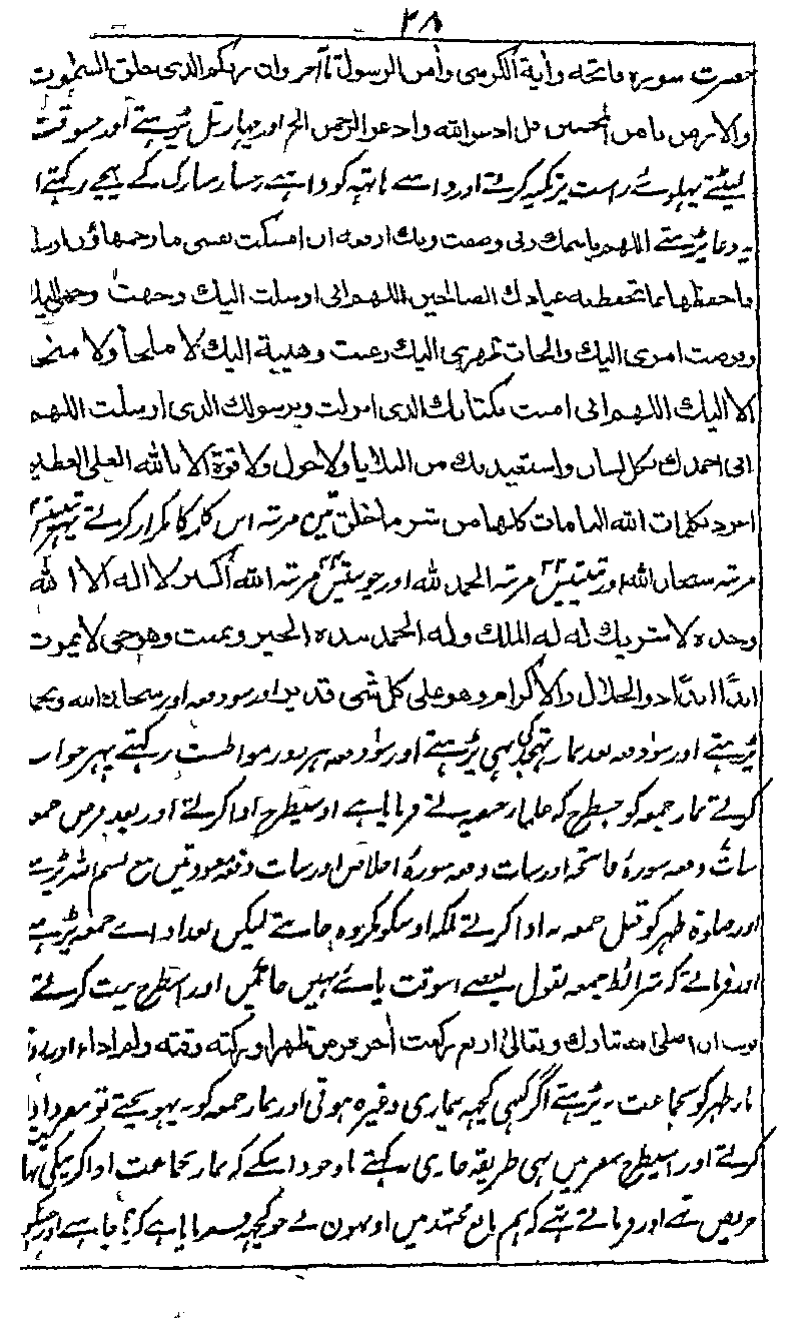 ۳۸
حضرت سورہ فاتحہ وآیة الکرسی وآمن الرسول تا آخر وان ربکم الذی خلق السموت
والارض تا من المحسنین قل ادعوا الله وادعوا الرحمن الخ اور چہار قل پڑہتے اور سوقت
لیٹتے پہلوئے راست پر تکیہ کرتے اور داہنے ہاتہہ کو داہنے رخسار مبارک کے نیچے رکہتے ا
یہ دعا پڑہتے اللهم باسمك ربی وضعت وبك ارفعه ان امسکت نفسی فارحمها وان ارسل
فاحفظها بما تحفظ به عبادك الصالحین اللهم انی اسلمت الیك وجهت وجهی الیك
وفوضت امری الیك والجات ظهری الیك رغبت وهیبة الیك لا ملجأ ولا منجی
الا الیك اللهم انی امنت بکتابك الذی انزلت وبرسولك الذی ارسلت اللهم
انی احمدك بکل لسان واستعیذ بك من البلایا ولا حول ولا قوة الا بالله العلی العظیم
اعوذ بکلمات الله التامات کلها من شر ما خلق تین مرتبہ اس کلمہ کا تکرار کرتے پہر تینتیس
مرتبہ سبحان الله اور تینتیس ۳۳ مرتبہ الحمد لله اور چونتیس ۳۴ مرتبہ الله اکبر لا اله الا الله
وحده لا شریك له له الملك وله الحمد بیده الخیر ویمیت وهو حی لا یموت
ابدًا ابدًا ذو الجلال والاکرام وهو علی کل شی قدیر اور سو دفعہ اور سبحان الله وبحمد
پڑہتے اور سو دفعہ بعد نماز تہجد کی بہی پڑہتے اور سو دفعہ ہر روز مواظبت رکہتے پہر خواب
کرتے نماز جمعہ کو جسطرح کہ علمای حنفیہ نے فرمایا ہے اوسیطرح ادا کرتے اور بعد فرض جمعہ
سات دفعہ سورۂ فاتحہ اور سات دفعہ سورۂ اخلاص اور سات دفعہ معوذتین مع بسم الله پڑہتے
اور صلوة ظہر کو قبل جمعہ نہ ادا کرتے بلکہ اوسکو مکروہ جانتے لیکن بعد ادائے جمعہ پڑہتے
اور فرماتے کہ شرائط جمعہ بقول بعضے اسوقت پائے نہیں جاتیں اور اسطرح نیت کرتے
نویت ان اصلی لله تبارك وتعالی اربع رکعت آخر فرض ظهر ادرکته وقته ولم اداء اور
نماز ظہر کو بجماعت نہ پڑہتے اگر کبہی کچہہ بیماری وغیرہ ہوتی اور نماز جمعہ کو نہ پہونچتے تو منفرد ادا
کرتے اور اسیطرح سفر میں بہی طریقہ جاری رکہتے باوجود اسکے کہ نماز بجماعت ادا کرنیکی نہایت
حریص تہے اور فرماتے تہے کہ ہم تابع مجتہد ہیں اونہوں نے جو کچہہ فرمایا ہے کرنا چاہئے اور جسکو